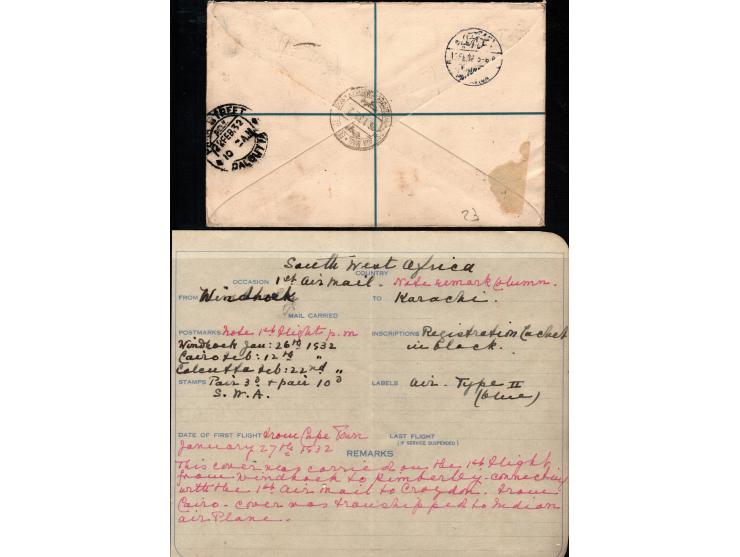 STREET
FEB.32
10 AM
CALCUTTA
F2
South West Africa
COUNTRY
OCCASION 1st Air Mail. Note remark Column.
FROM Windhoek TO Karachi.
MAIL CARRIED
POSTMARKS Note 1st Flight p.m INSCRIPTIONS Registration Cachet
Windhoek Jan: 26th 1932 in black.
Cairo Feb: 12th "
Calcutta Feb: 22nd "
STAMPS Pair 3d + pair 10d LABELS Air. Type II
S.W.A. (blue)
DATE OF FIRST FLIGHT From Cape Town LAST FLIGHT
(IF SERVICE SUSPENDED)
January 27th 1932
REMARKS
This cover was carried on the 1st Flight
from Windhoek to Kimberly - connecting
with the 1st Air mail to Croydon. From
Cairo - cover was transhipped to Indian
air Plane.